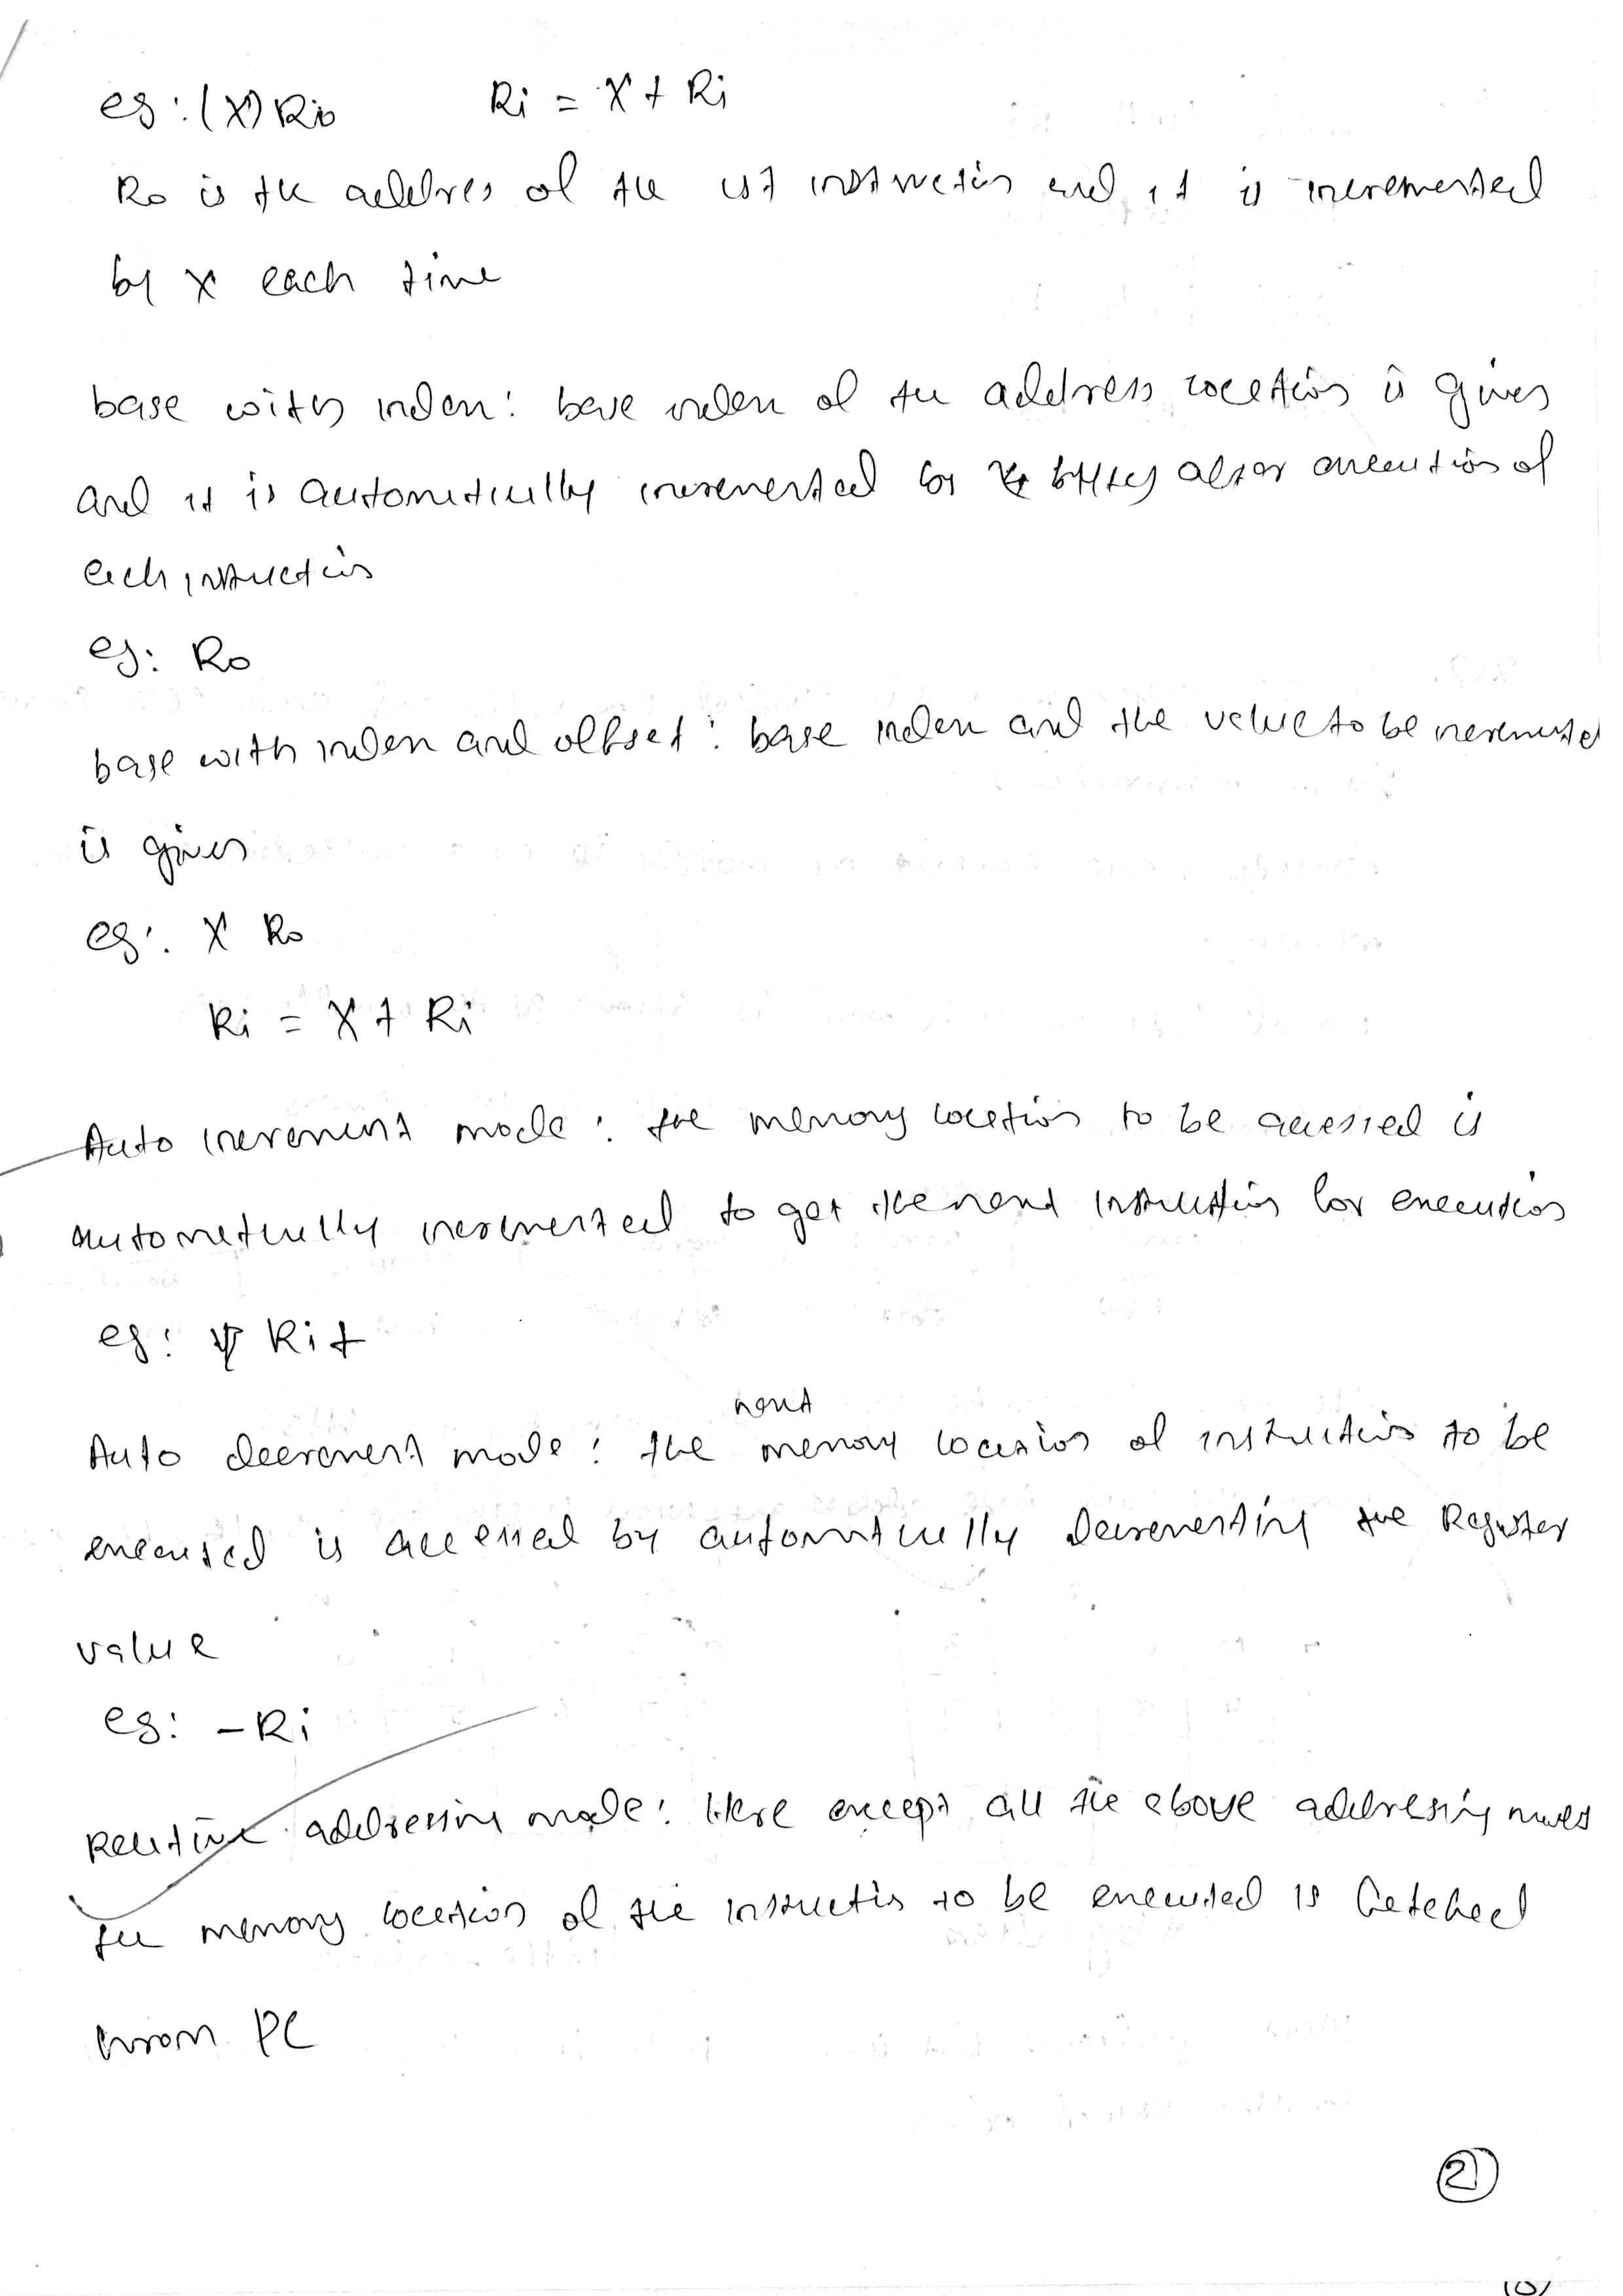 eg: (X) Ri Ri = X + Ri
Ro is the addres of the 1st instruction and it is incremented
by X each time
base with index: base index of the address location is given
and it is automatically incremented by bytes after execution of
each instruction
eg: Ro
base with index and offset: base index and the value to be incremented
is given
eg: X Ro
Ri = X + Ri
Auto increment mode: the memory location to be accessed is
automatically incremented to get the next instruction for execution
eg: Ri+
next
Auto decrement mode: the memory location of instruction to be
executed is accessed by automatically decrementing the Register
value
eg: -Ri
Relative addressing mode: Here except all the above addressing modes
the memory location of the instruction to be executed is fetched
from PC
2